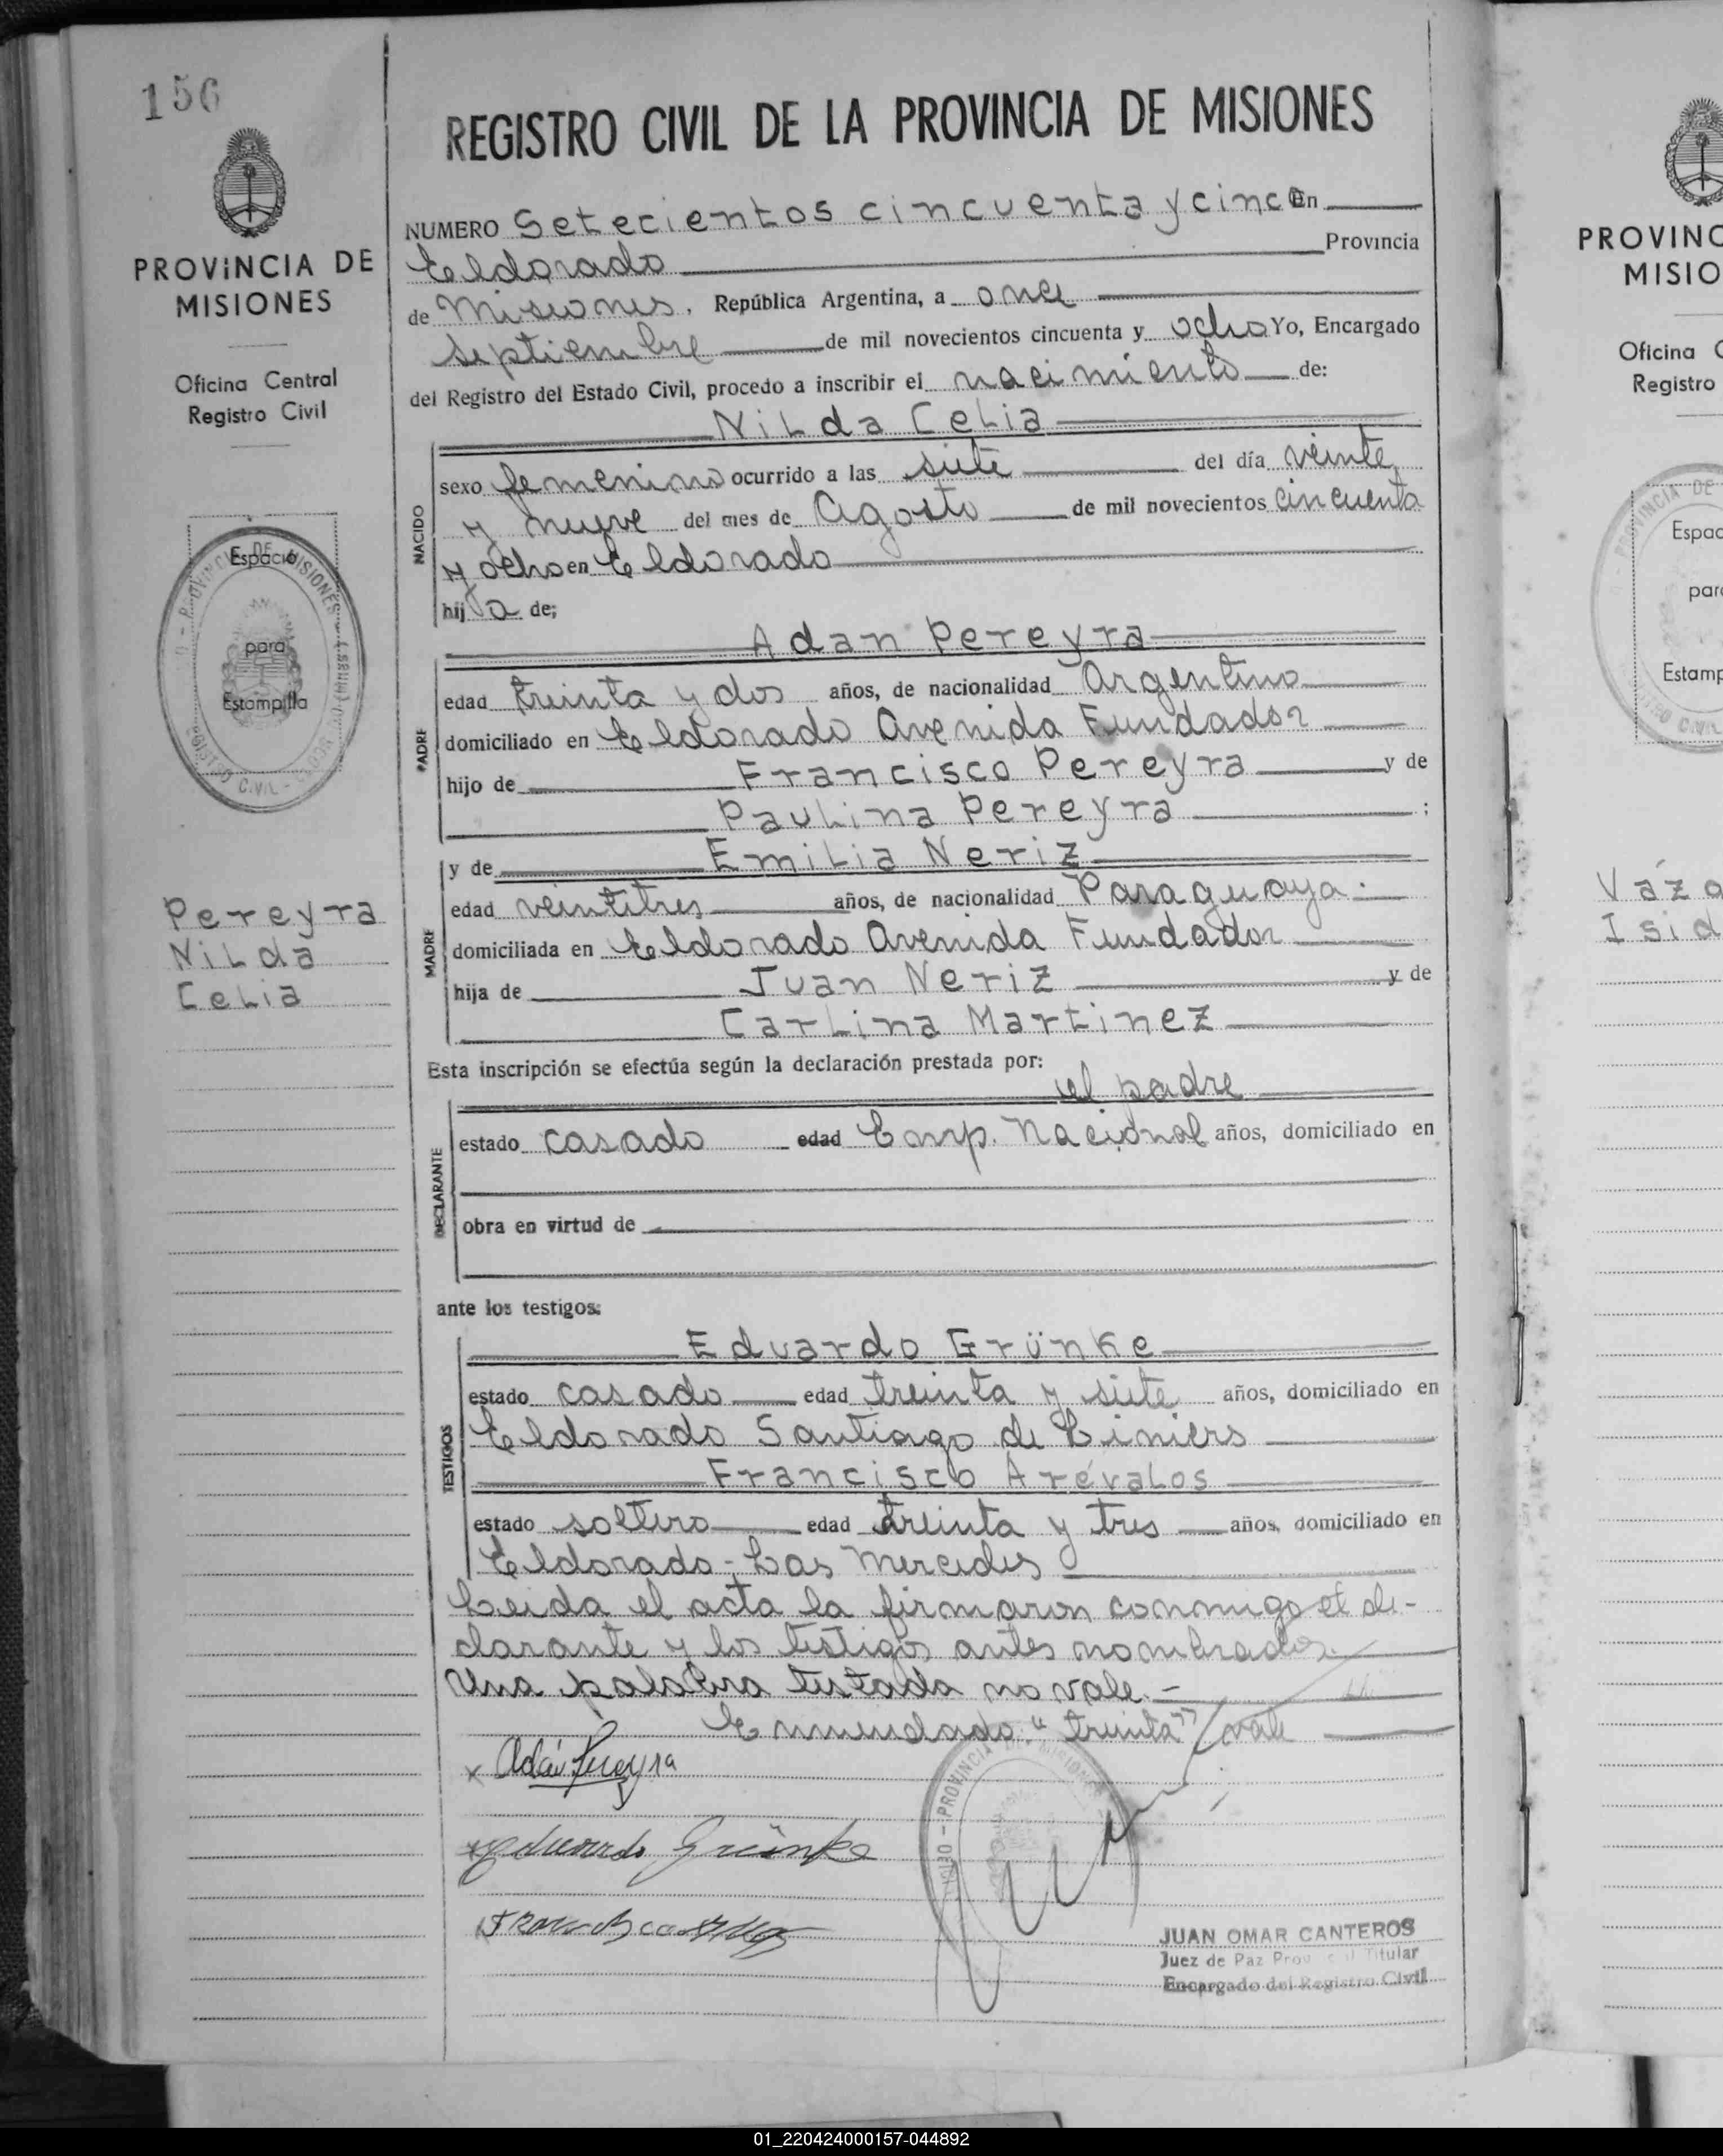 156
PROVINCIA DE
MISIONES
Oficina Central
Registro Civil
Espacio
para
Estampilla
Pereyra
Nilda
Celia
REGISTRO CIVIL DE LA PROVINCIA DE MISIONES
NUMERO Setecientos cincuenta y cinco En
Eldorado Provincia
de Misiones. República Argentina, a once
septiembre de mil novecientos cincuenta y ocho Yo, Encargado
del Registro del Estado Civil, procedo a inscribir el nacimiento de:
Nilda Celia
NACIDO
sexo femenino ocurrido a las siete del día veinte
y nueve del mes de Agosto de mil novecientos cincuenta
y ocho en Eldorado
hij a de;
Adan Pereyra
PADRE
edad treinta y dos años, de nacionalidad Argentino
domiciliado en Eldorado Avenida Fundador
hijo de Francisco Pereyra y de
Paulina Pereyra ;
y de Emilia Neriz
MADRE
edad veintitres años, de nacionalidad Paraguaya.
domiciliada en Eldorado Avenida Fundador
hija de Juan Neriz y de
Carlina Martinez
Esta inscripción se efectúa según la declaración prestada por:
el padre
DECLARANTE
estado casado edad Emp. Nacional años, domiciliado en
obra en virtud de
ante los testigos:
Eduardo Grünke
TESTIGOS
estado casado edad treinta y siete años, domiciliado en
Eldorado Santiago de Liniers
Francisco Arévalos
estado soltero edad treinta y tres años, domiciliado en
Eldorado - Las Mercedes
Leida el acta la firmaron conmigo el de-
clarante y los testigos antes nombrados.
Una palabra testada no vale.-
Enmendado: "treinta" vale
x Adán Pereyra
x Eduardo Grünke
JUAN OMAR CANTEROS
Juez de Paz Titular
Encargado del Registro Civil
PROVINC
MISIO
Oficina C
Registro
Espac
para
Estamp
Váza
Isid
01_220424000157-044892